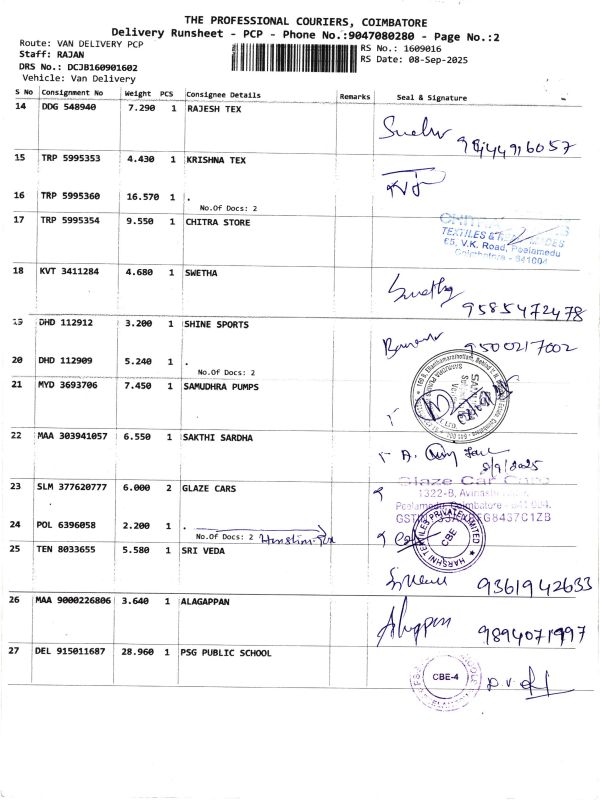 THE PROFESSIONAL COURIERS, COIMBATORE
Delivery Runsheet - PCP - Phone No.:9047080280 - Page No.:2
Route: VAN DELIVERY PCP
RS No.: 1609016
Staff: RAJAN
RS Date: 08-Sep-2025
DRS No.: DCJB160901602
Vehicle: Van Delivery
S No Consignment No Weight PCS Consignee Details Remarks Seal & Signature
14 DDG 548940 7.290 1 RAJESH TEX
15 TRP 5995353 4.430 1 KRISHNA TEX
KVT
16 TRP 5995360 16.570 1 .
No.Of Docs: 2
17 TRP 5995354 9.550 1 CHITRA STORE
TEXTILES &
65, V.K. Road, Peelamedu
Coimbatore - 641004
18 KVT 3411284 4.680 1 SWETHA
Swetha
9585472478
19 DHD 112912 3.200 1 SHINE SPORTS
9500217002
20 DHD 112909 5.240 1 .
No.Of Docs: 2
21 MYD 3693706 7.450 1 SAMUDHRA PUMPS
22 MAA 303941057 6.550 1 SAKTHI SARDHA
8/9/2025
23 SLM 377620777 6.000 2 GLAZE CARS
Glaze Car Care
1322-B, Avinashi
Peelamedu, Coimbatore - 641 004.
24 POL 6396058 2.200 1 .
No.Of Docs: 2
HARSHNI TEXTILES PRIVATE LIMITED
CBE
25 TEN 8033655 5.580 1 SRI VEDA
9361942633
26 MAA 9000226806 3.640 1 ALAGAPPAN
Alagappan
9894071997
27 DEL 915011687 28.960 1 PSG PUBLIC SCHOOL
CBE-4